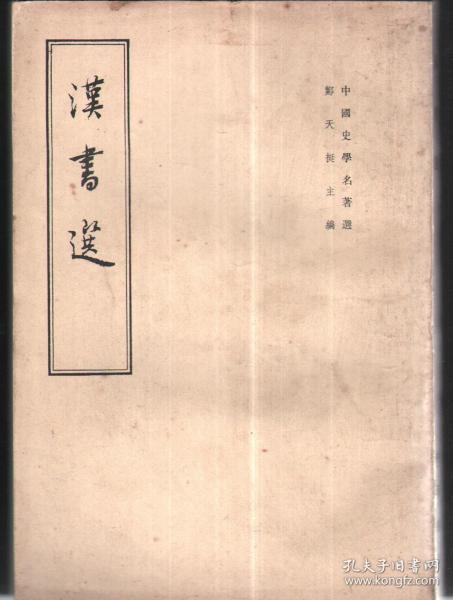 中國史學名著選
鄭天挺主編
漢書選
孔夫子旧书网
www.kongfz.com